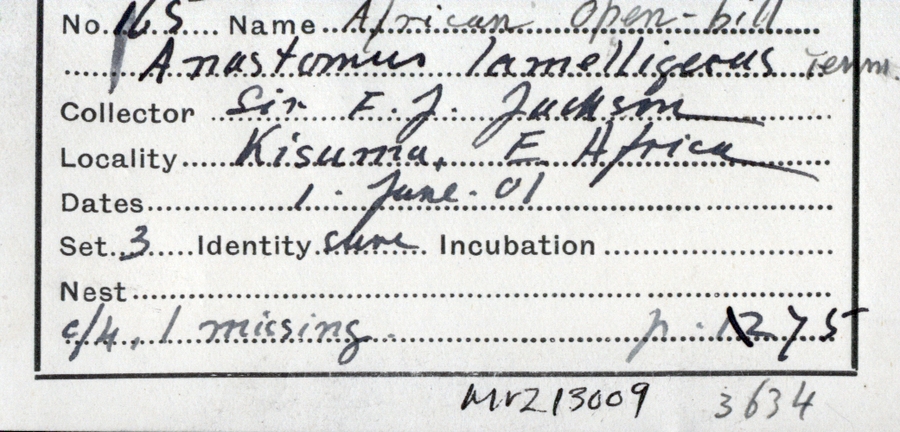 No. 165 Name African Open-bill
Anastomus lamelligerus Temm.
Collector Sir F. J. Jackson
Locality Kisumu, E Africa
Dates 1. June. 01
Set 3 Identity sure Incubation
Nest
c/4, 1 missing. p. 1275
MVZ13009 3634